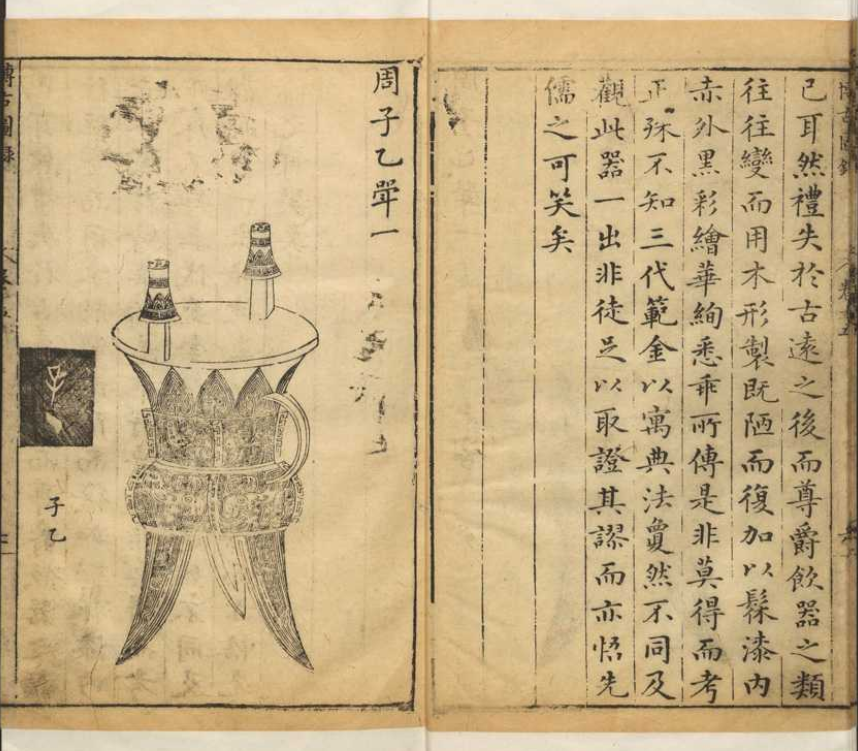 已耳然禮失於古遠之後而尊爵飲器之類
往往變而用木形製既陋而復加以髹漆内
赤外黑彩繪華絢悉乖所傳是非莫得而考
正殊不知三代範金以寓典法敻然不同及
觀此器一出非徒足以取證其謬而亦悟先
儒之可笑矣
周子乙斝一
子乙
博古圖錄